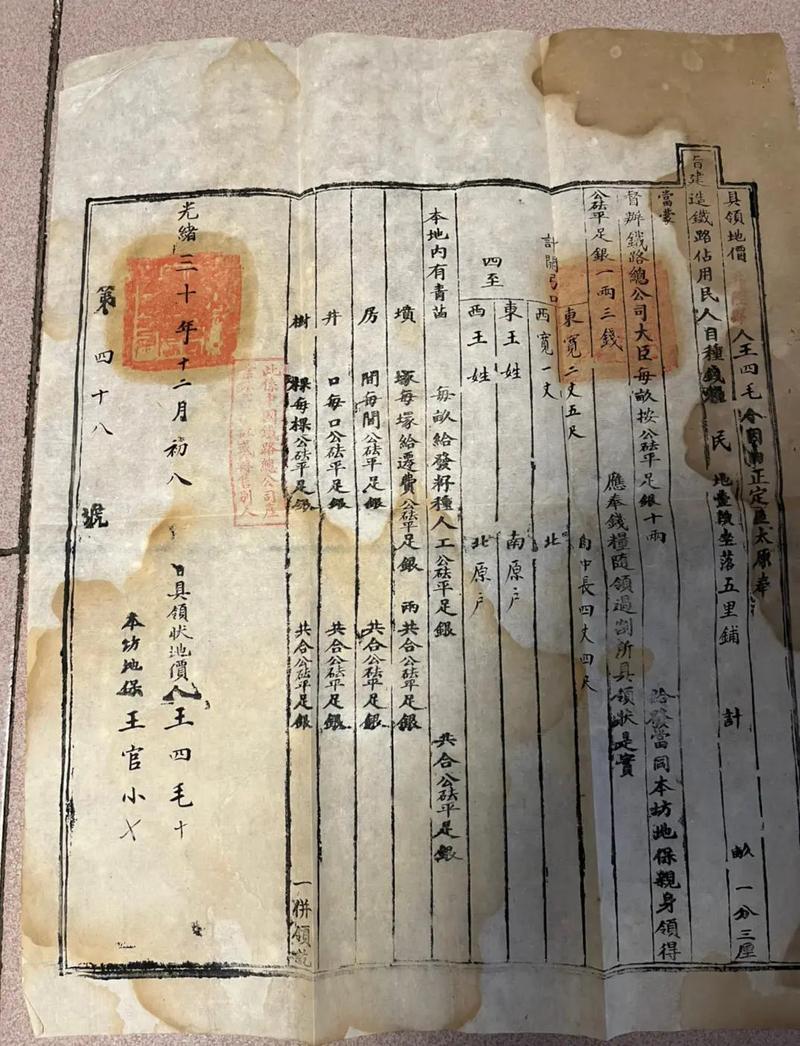 具領地價 人王四毛今 正定 太原奉
旨建造鐵路佔用民人自種 民 地 坐落五里鋪 計 畝一分三厘
當蒙
督辦鐵路總公司大臣每畝按公砝平足銀十兩
公砝平足銀一兩三錢 給發當同本坊地保親身領得
應奉錢糧隨領過割所具領狀是實
計開弓口 東寬二丈五尺 自中長四丈四尺
西寬一丈 北
四至 東王姓 南原户
西王姓 北原户
本地內有青苗 每畝給發籽種人工公砝平足銀 共合公砝平足銀
墳 塚每塚給遷費公砝平足銀 兩共合公砝平足銀
房 間每間公砝平足銀 共合公砝平足銀
井 口每口公砝平足銀 共合公砝平足銀
樹 棵每棵公砝平足銀 共合公砝平足銀 一併領訖
此係中國鐵路總公司產
光緒三十年十二月初八 日具領狀地價人王四毛十
本坊地保王官小乂
第四十八號